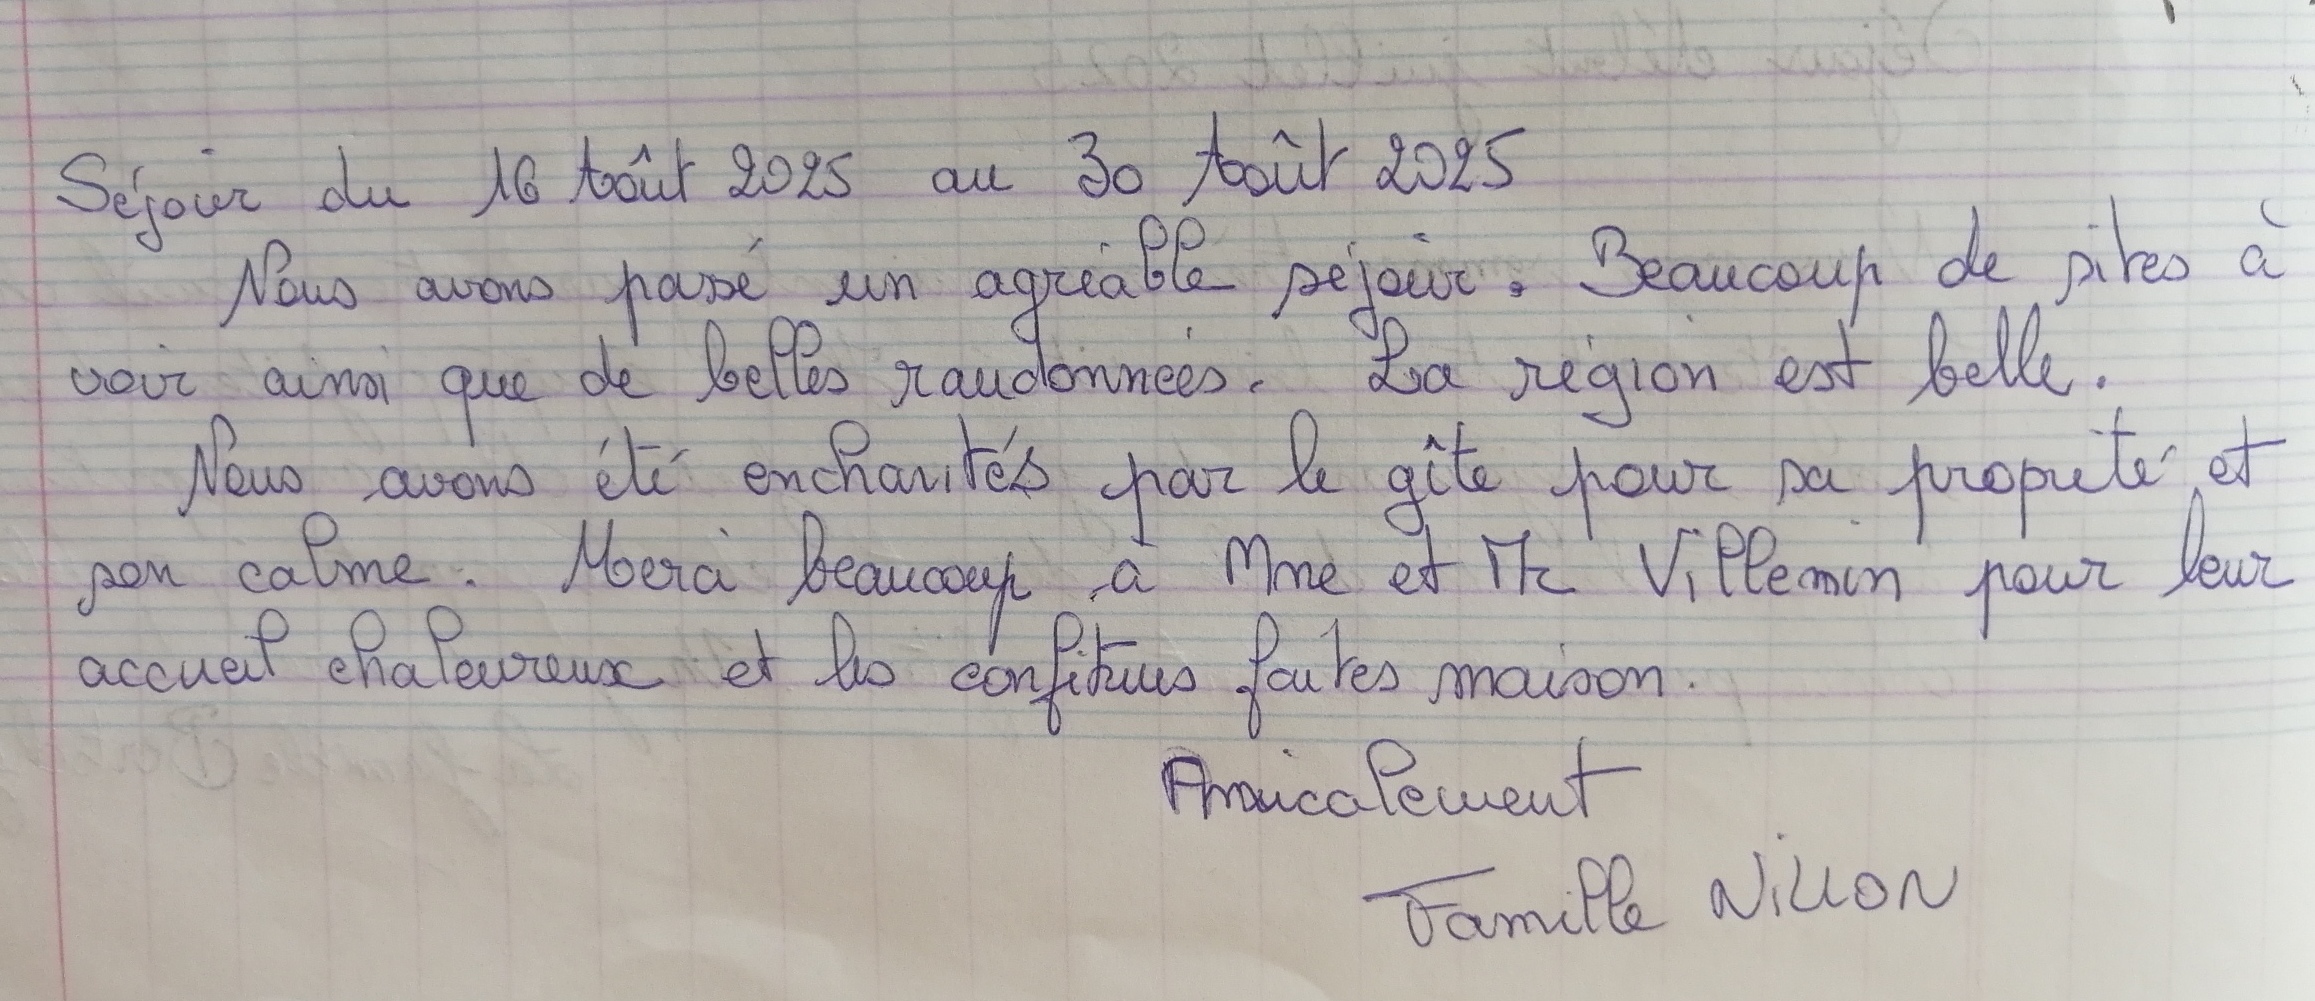 Séjour du 16 Août 2025 au 30 Août 2025
Nous avons passé un agréable séjour. Beaucoup de sites à
voir ainsi que de belles randonnées. La région est belle.
Nous avons été enchantés par le gîte pour sa propreté et
son calme. Merci beaucoup à Mme et Mr Villemin pour leur
accueil chaleureux et les confitures faites maison.
Amicalement
Famille NiLLON